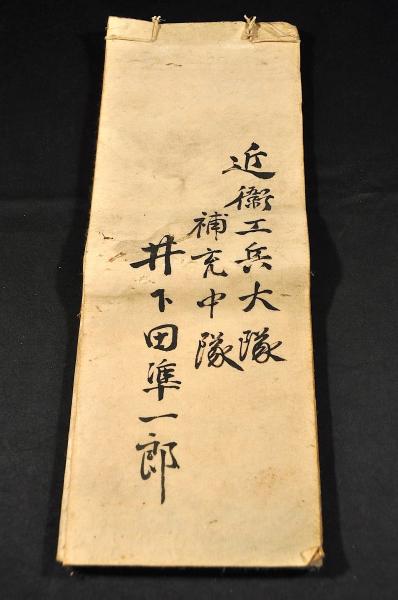 近衞工兵大隊
補充中隊
井下田準一郎